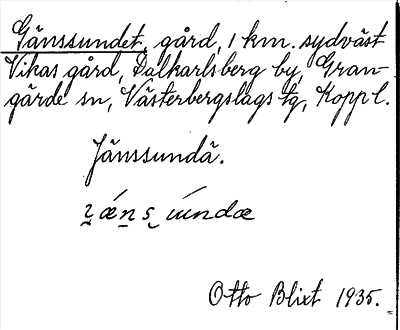 Gänssundet, gård, 1 km. sydväst
Vikas gård, Dalkarlsberg by, Gran-
gärde sn, Västerbergslags tg, Kopp l.
Jänssundä.
Otto Blixt 1935.